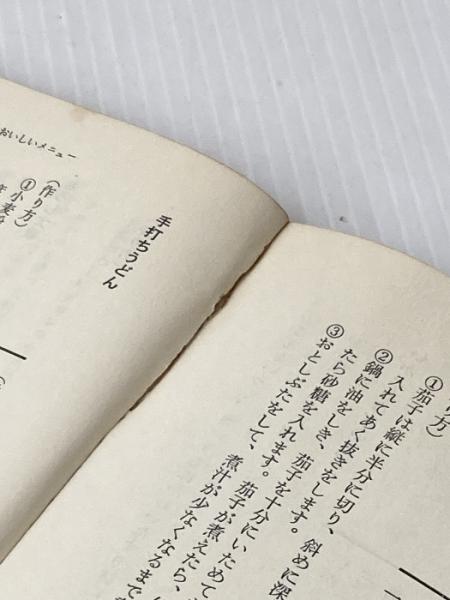 り方)
①茄子は縦に半分に切り、斜めに深
入れてあく抜きをします。
②鍋に油をしき、茄子を十分にいためて
たら砂糖を入れます。茄子が煮えたら、
③おとしぶたをして、煮汁が少なくなるまで
おいしいメニュー
手打ちうどん
(作り方)
①小麦